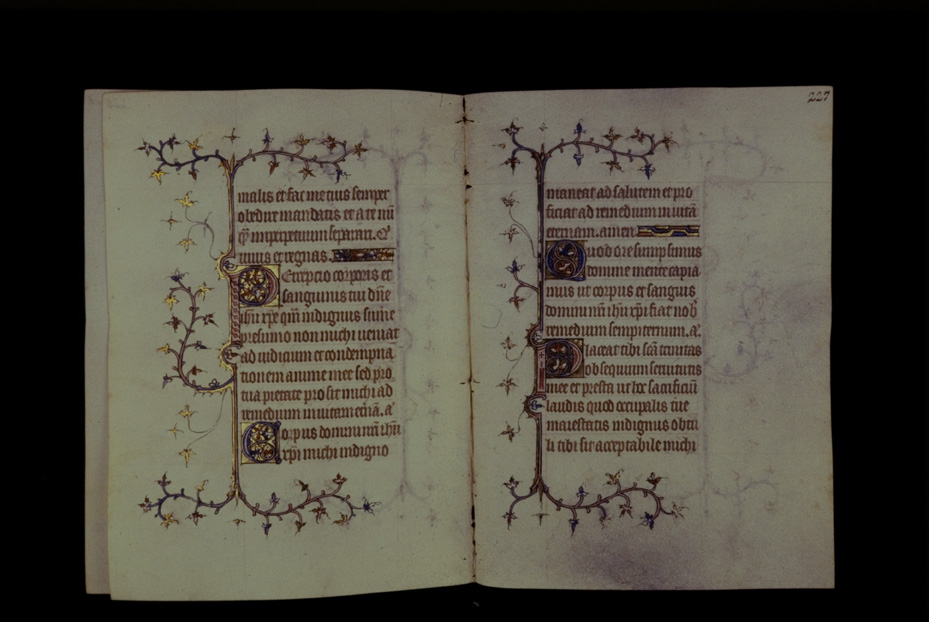 malis et fac me tuis semper
obedire mandatis et a te nū
q̄ ̄imperpetuum separari. Q̇
uiuis et regnas.
Perceptio corporis et
sanguinis tui dn̄e
ihū xp̄e qm̄ indignus sume
presumo non michi ueniat
ad iudicium et condempna
tionem anime mee sed pro
tua pietate prosit michi ad
remedium in uitam etn̄ā. a᷒
Corpus domini nr̄i ihū
xp̄i michi indigno
227
maneat ad salutem et pro
ficiat ad remedium in uitā
eternam. amen.
Quod ore sumpsimus
domine mente capia
mus ut corpus et sanguis
domini nr̄i ihū xp̄i fiat nob̄
remedium sempiternum. a᷒
Placeat tibi sc̄ā trinitas
obsequium seruitutis
mee et presta ut hoc sacrificiū
laudis quod occupalis tue
maiestatis indignus obtu
li tibi sit acceptabile michi